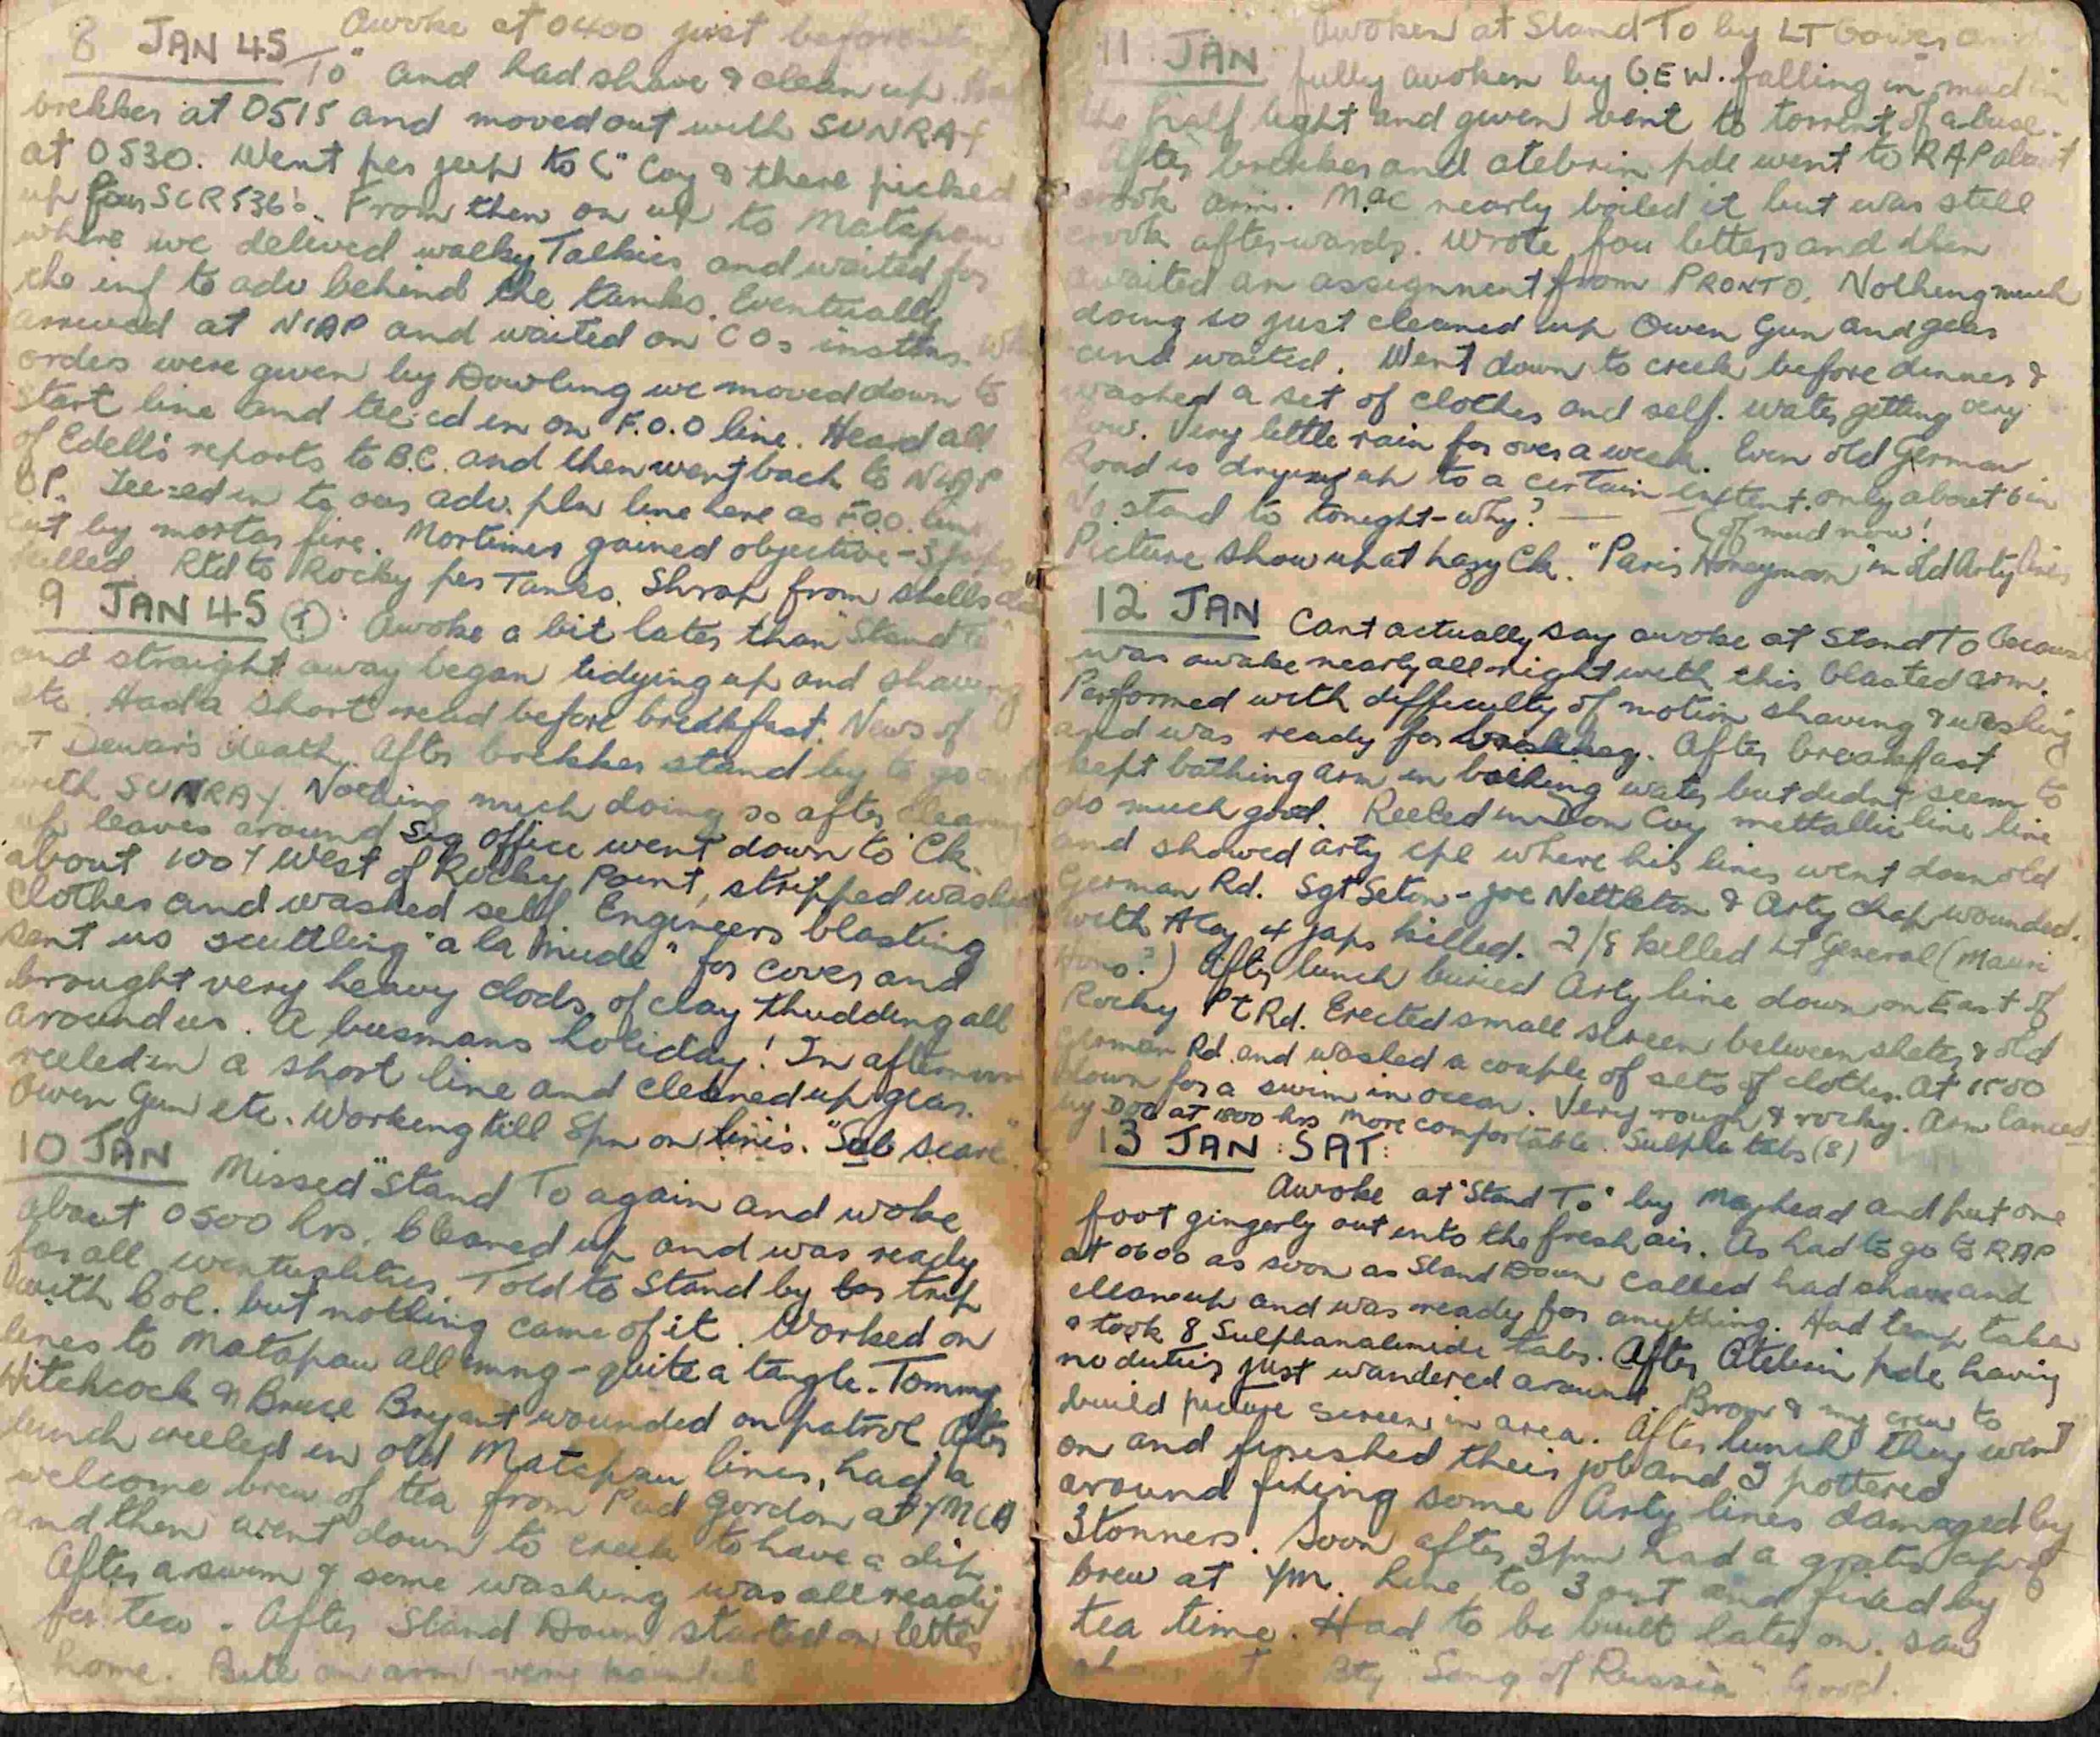 8 JAN 45 Awoke at 0400 just before
To" and had shave & clean up.
brekker at 0515 and moved out with SUNRAY
at 0530. Went per jeep to C" Coy & there picked
up four SCR536's. From then on up to Matapau
where we delived walky Talkies and waited for
the inf to adv behind the tanks. Eventually
arrived at NIAP and waited on COs instns.
orders were given by Dowling we moved down to
start line and tee-ed in on F.O.O line. Heard all
of Edell's reports to B.C. and then went back to NIAP
O.P. Tee-ed in to our adv. pln line here as F.O.O. line
cut by mortar fire. Mortimer gained objective - 3 japs
killed. Rtd to Rocky per Tanks. Shrap from shells
9 JAN 45 Awoke a bit later than "Stand To"
and straight away began tidying up and shaving
etc. Had a short read before breakfast. News of
Dewar's death. After brekker stand by to go
with SUNRAY. Nothing much doing so after clearing
up leaves around Sig Office went down to Ck.
about 100Y West of Rocky Point, stripped washed
clothes and washed self. Engineers blasting
sent us scuttling "a la nude" for cover and
brought very heavy clods of clay thudding all
around us. A busmans holiday! In afternoon
reeled in a short line and cleaned up gear.
Owen Gun etc. Working till 8pm on lines. "Sub scare"
10 JAN Missed "Stand To again and woke
about 0500 hrs. Cleaned up and was ready
for all eventualities. Told to Stand by for trip
with Col. but nothing came of it. Worked on
lines to Matapau all mng - quite a tangle. Tommy
Hitchcock & Bruce Bryant wounded on patrol. After
lunch reeled in old Matapau lines, had a
welcome brew of tea from Pud Gordon at YMCA
and then went down to creek to have a dip
After a swim & some washing was all ready
for tea. After Stand Down started on letter
home. Bite on arm very painful
11 JAN Awoken at Stand To by LT Gower and
fully awoken by G.E.W. falling in mud in
the half light and given vent to torrent of abuse.
After brekker and atebrin pde went to RAP about
crook arm. Mac nearly boiled it but was still
crook afterwards. Wrote four letters and then
awaited an assignment from PRONTO. Nothing much
doing so just cleaned up Owen Gun and gear
and waited. Went down to creek before dinner &
washed a set of clothes and self. Water getting very
low. Very little rain for over a week. Even old German
Road is drying up to a certain extent. only about 6 in
No stand to tonight - why? (of mud now!
Picture show up at hazy Ck. "Paris Honeymoon" in old Arty lines
12 JAN Cant actually say awoke at Stand To because
was awake nearly all night with this blasted arm.
Performed with difficulty of motion shaving & washing
and was ready for brekker. After breakfast
kept bathing arm in boiling water but didnt seem to
do much good. Reeled in Don Coy mettallic line line
and showed arty cpl where his lines went down old
German Rd. Sgt Seton - Joe Nettleton & Arty chap wounded.
with A Coy 4 japs killed. 2/8 killed Lt General (Mauri
Hino?) After lunch buried Arty line down on East of
Rocky Pt Rd. Erected small screen between skeles & old
German Rd. and washed a couple of sets of clothes. At 1500
down for a swim in ocean. Very rough & rocky. Arm lanced
by Doc at 1800 hrs more comfortable. Sulpha tabs (8)
13 JAN: SAT:
Awoke at "Stand To" by Mayhead and put one
foot gingerly out into the fresh air. As had to go to RAP
at 0600 as soon as Stand Down called had shave and
clean up and was ready for anything. Had temp taken
& took 8 Sulphanalimide tabs. After Atebrin pde having
no duties just wandered around. Brow & my crew to
build picture screen in area. After lunch they went
on and finished their job and I pottered
around fixing some Arty lines damaged by
3tonners. Soon after 3pm had a gratis cup of
brew at YM. Line to 3 out and fixed by
tea time. Had to be built later on. Saw
at Bty "Song of Russia" Good.